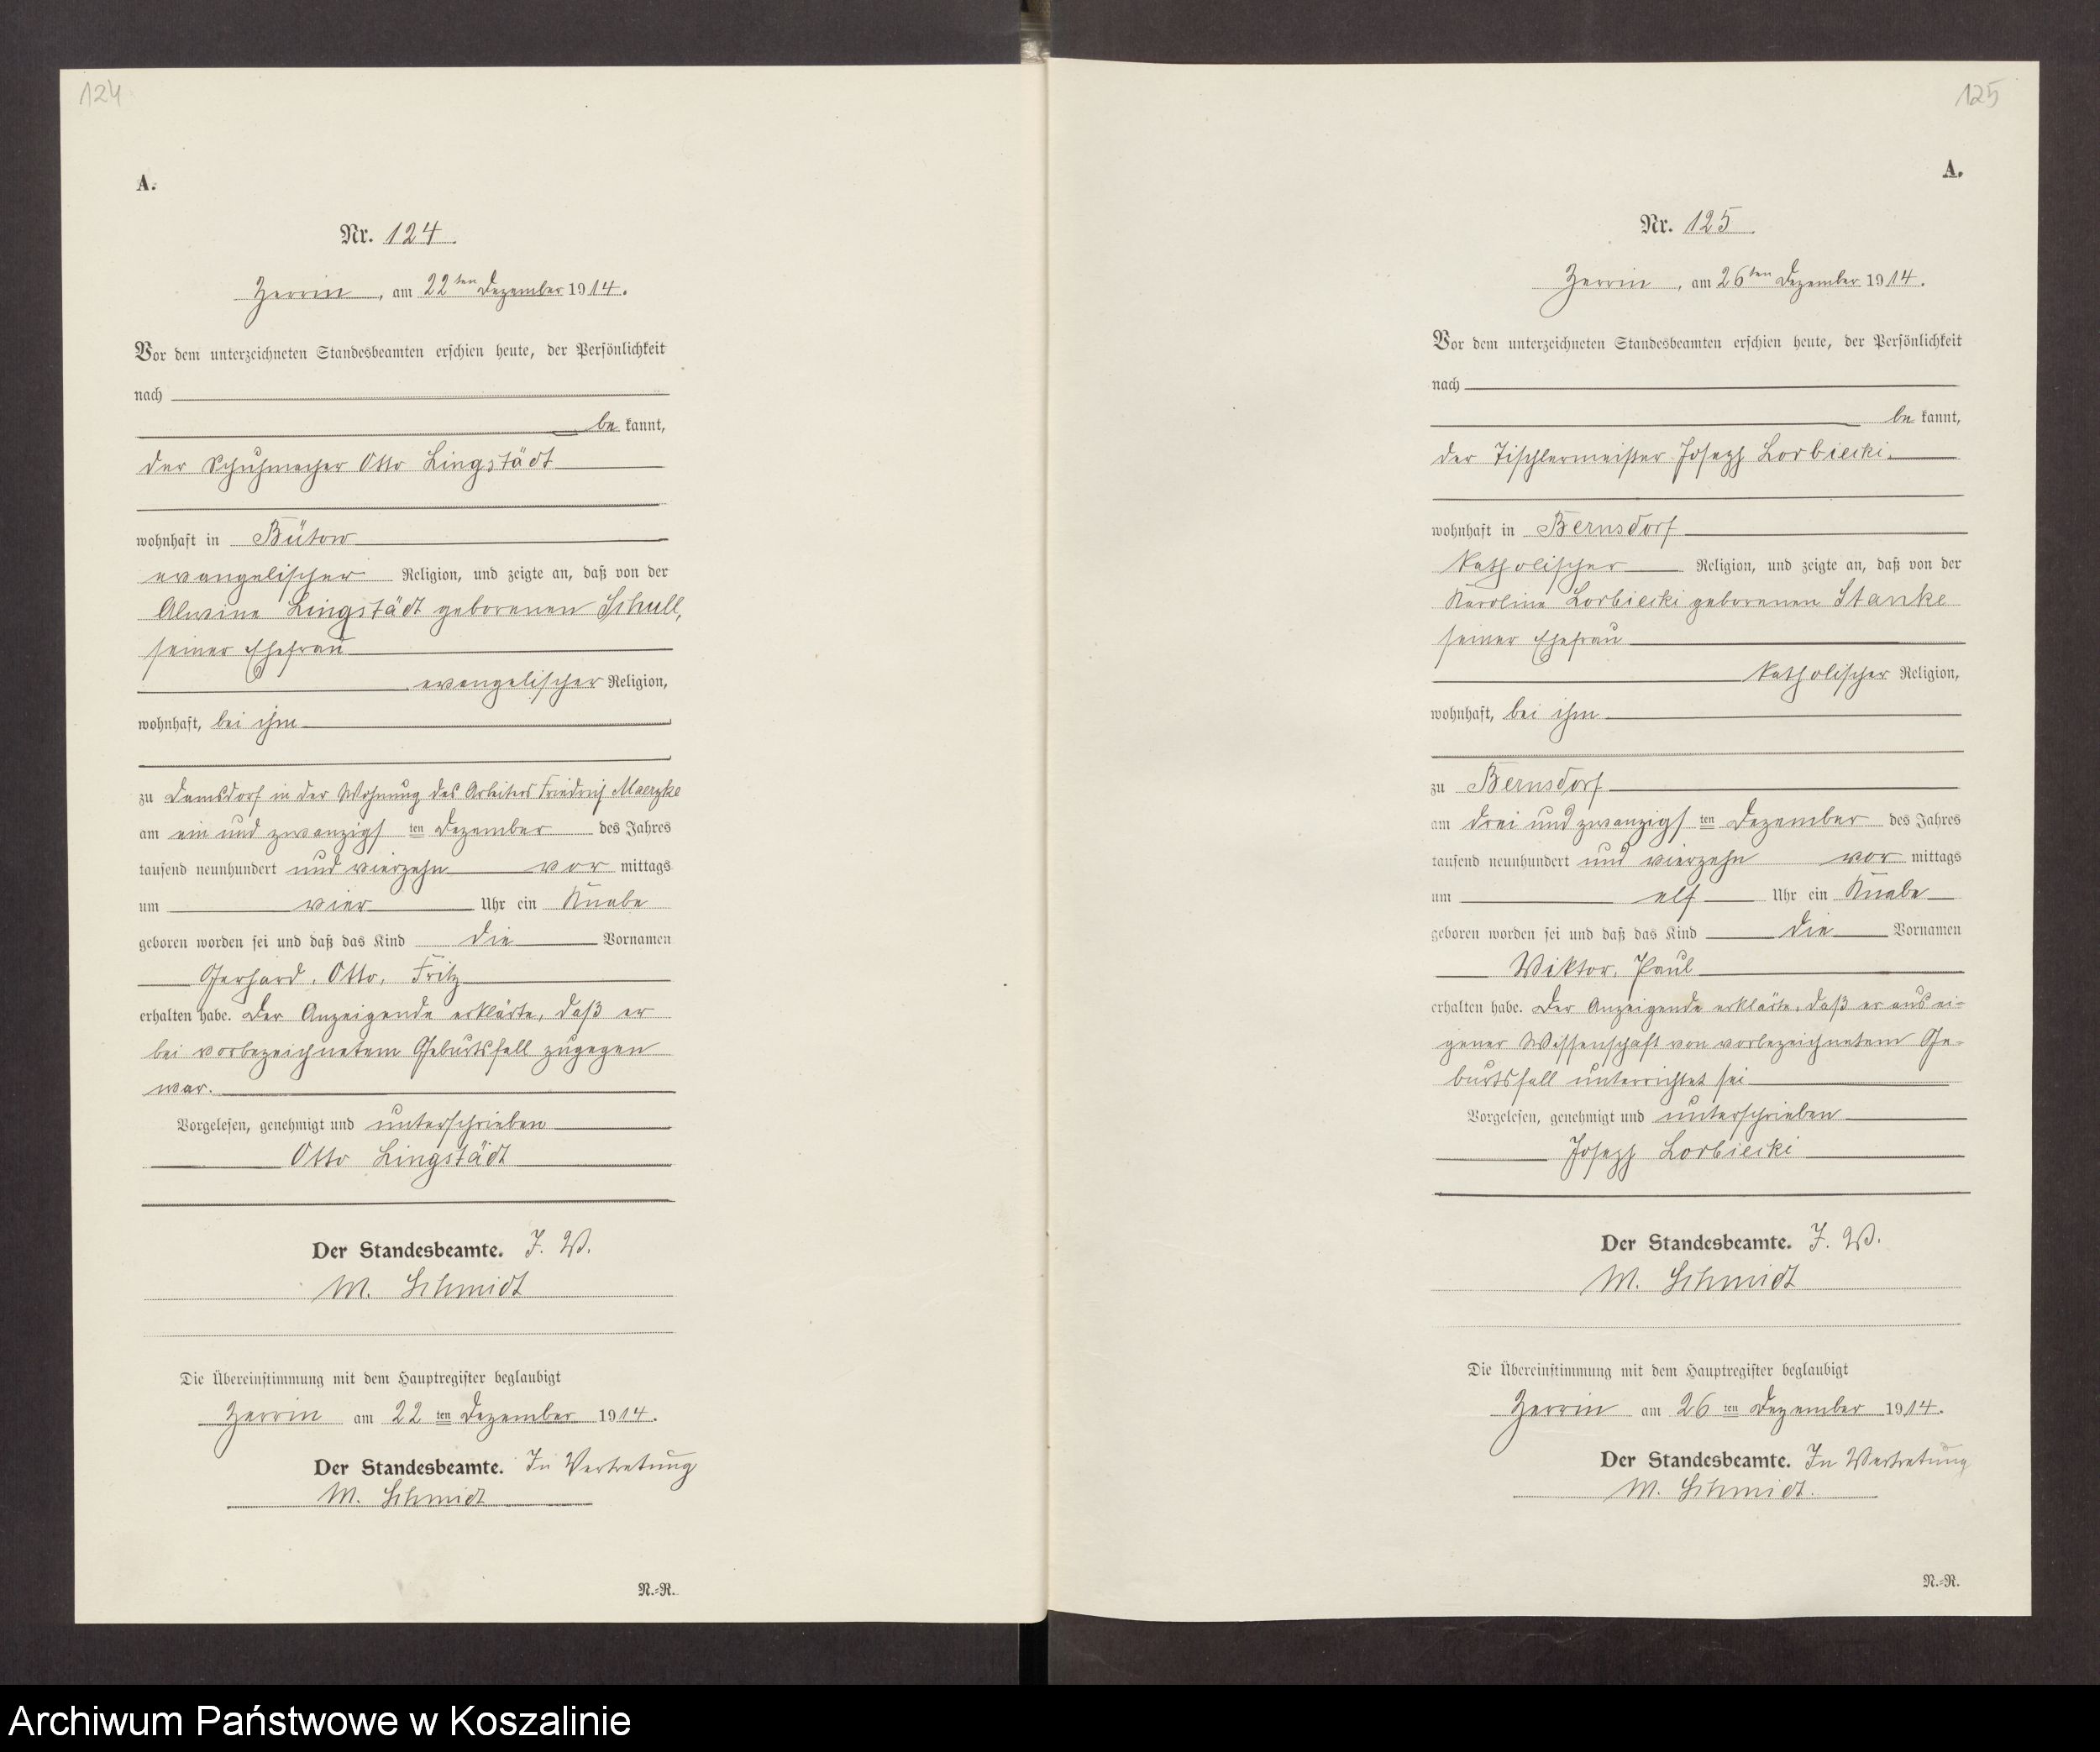 124
A.
Nr. 124.
Zerrin, am 22ten Dezember 1914.
Vor dem unterzeichneten Standesbeamten erschien heute, der Persönlichkeit
nach
be kannt,
der Schuhmacher Otto Lingstädt
wohnhaft in Bütow
evangelischer Religion, und zeigte an, daß von der
Alwine Lingstädt geborenen Schull,
seiner Ehefrau
evangelischer Religion,
wohnhaft, bei ihm
zu Damsdorf in der Wohnung des Arbeiters Friedrich Maerzke
am ein und zwanzigs ten Dezember des Jahres
tausend neunhundert und vierzehn vor mittags
um vier Uhr ein Knabe
geboren worden sei und daß das Kind die Vornamen
Gerhard, Otto, Fritz
erhalten habe. Der Anzeigende erklärte, daß er
bei vorbezeichnetem Geburtsfall zugegen
war.
Vorgelesen, genehmigt und unterschrieben
Otto Lingstädt
Der Standesbeamte. J. V.
M. Schmidt
Die Übereinstimmung mit dem Hauptregister beglaubigt
Zerrin am 22 ten Dezember 1914.
Der Standesbeamte. In Vertretung
M. Schmidt
N.-R.
125
A.
Nr. 125.
Zerrin, am 26ten Dezember 1914.
Vor dem unterzeichneten Standesbeamten erschien heute, der Persönlichkeit
nach
be kannt,
der Tischlermeister Joseph Lorbiecki.
wohnhaft in Bernsdorf
katholischer Religion, und zeigte an, daß von der
Karoline Lorbiecki geborenen Stanke
seiner Ehefrau
katholischer Religion,
wohnhaft, bei ihm
zu Bernsdorf
am drei und zwanzigs ten Dezember des Jahres
tausend neunhundert und vierzehn vor mittags
um elf Uhr ein Knabe
geboren worden sei und daß das Kind die Vornamen
Wiktor, Paul
erhalten habe. Der Anzeigende erklärte, daß er aus ei-
gener Wissenschaft von vorbezeichnetem Ge-
burtsfall unterrichtet sei
Vorgelesen, genehmigt und unterschrieben
Joseph Lorbiecki
Der Standesbeamte. J. V.
M. Schmidt
Die Übereinstimmung mit dem Hauptregister beglaubigt
Zerrin am 26 ten Dezember 1914.
Der Standesbeamte. In Vertretung
M. Schmidt.
N.-R.
Archiwum Państwowe w Koszalinie